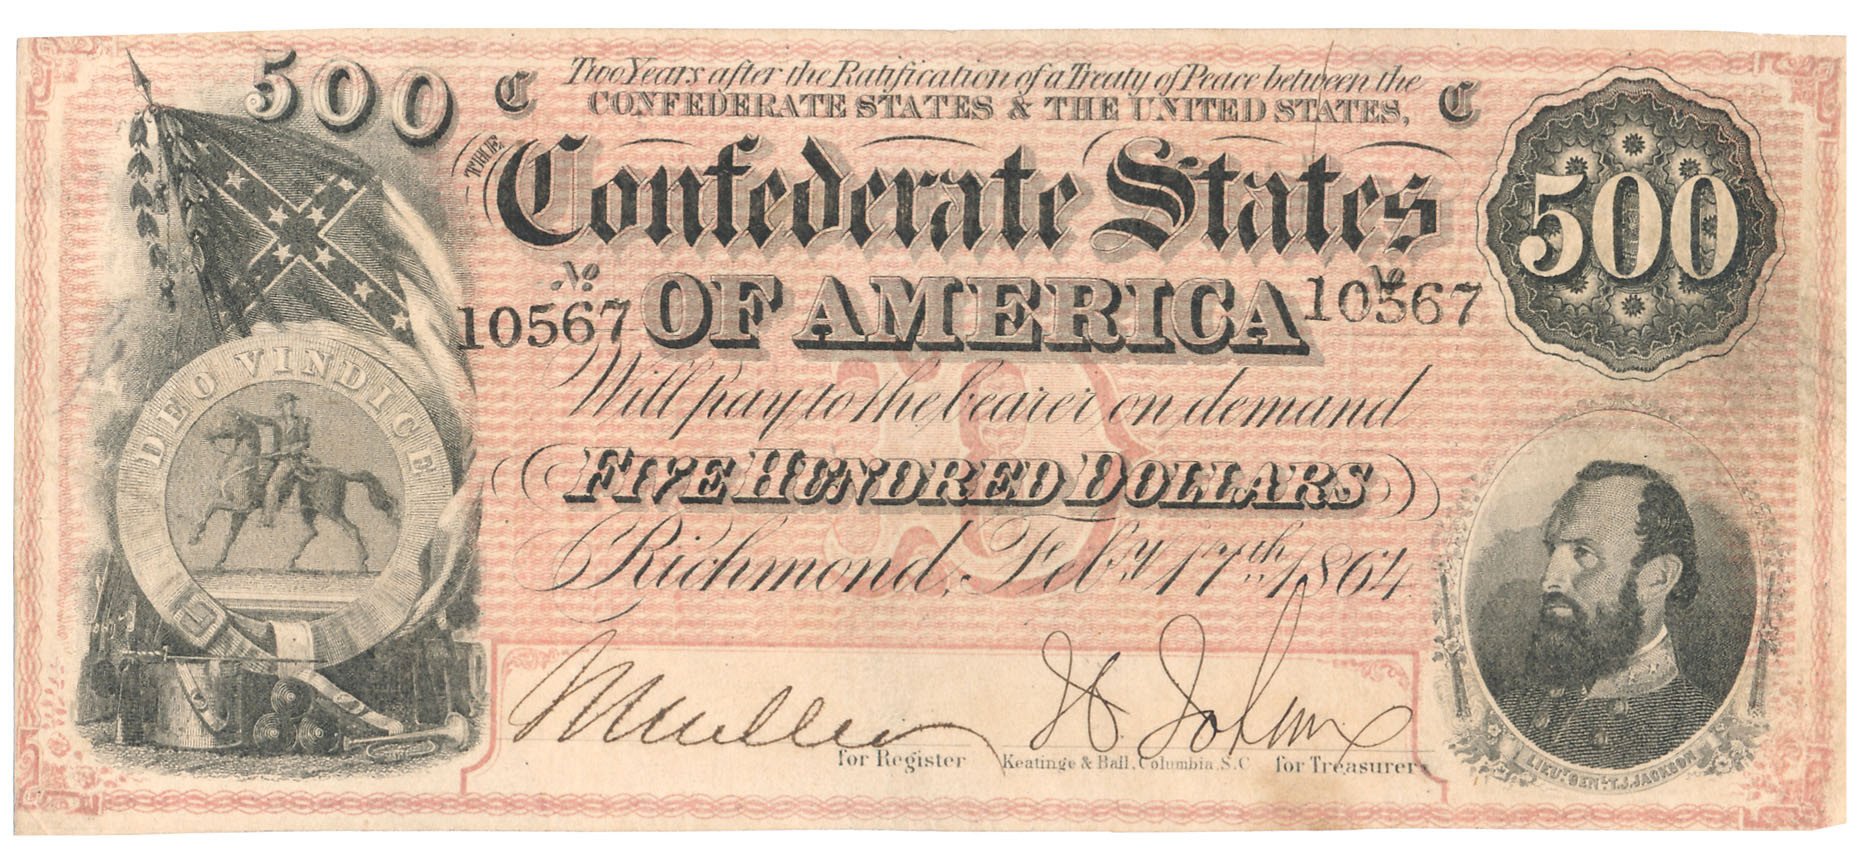 500
C Two Years after the Ratification of a Treaty of Peace between the C
CONFEDERATE STATES & THE UNITED STATES,
500
THE Confederate States
No 10567 OF AMERICA No 10567
Will pay to the bearer on demand
DEO VINDICE
FIVE HUNDRED DOLLARS
Richmond, Feby. 17th. 1864.
for Register
Keatinge & Ball, Columbia, S.C.
for Treasurer
LIEUT. GEN. T. J. JACKSON